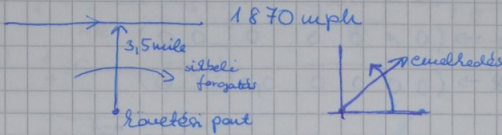 1870 mph
3,5 mile
síkbeli
forgatás
emelkedés
követési pont